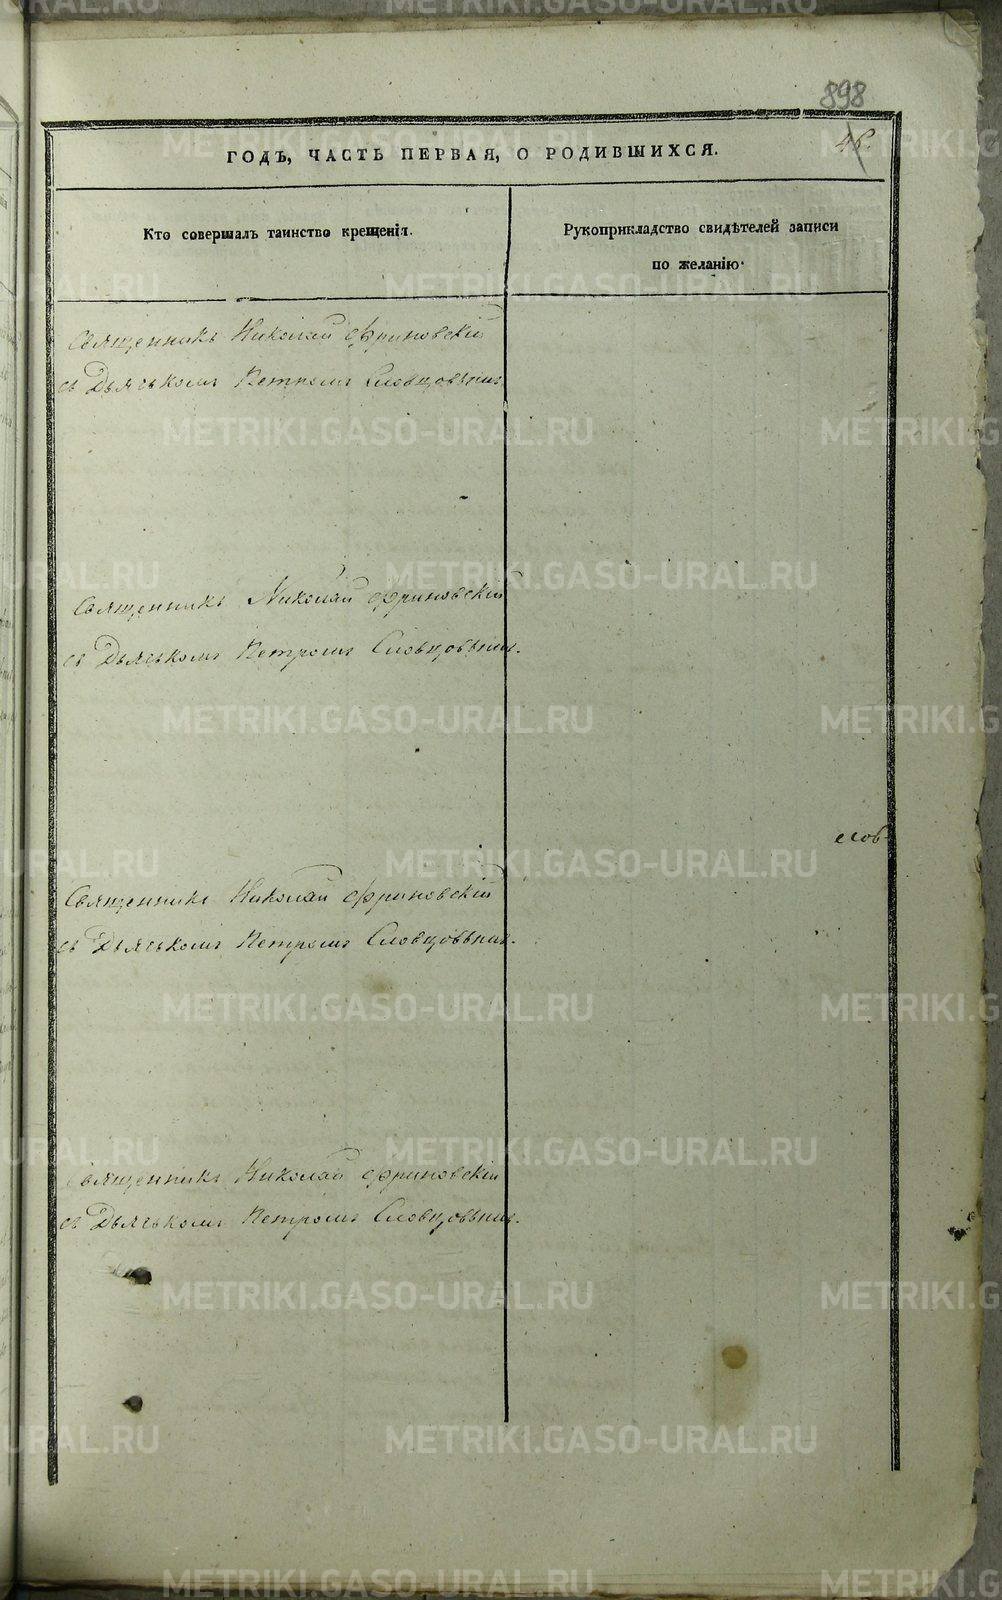 898
ГОДЪ, ЧАСТЬ ПЕРВАЯ, О РОДИВШИХСЯ.
Кто совершалъ таинство крещенія.
Рукоприкладство свидѣтелей записи
по желанію.
Священникъ Николай Фриновскій
съ Дьячькомъ Петромъ Словцовымъ
Священникъ Николай Фриновскій
съ Дьячькомъ Петромъ Словцовымъ.
слов-
Священникъ Николай Фриновскій
съ Дьячькомъ Петромъ Словцовымъ.
Священникъ Николай Фриновскій
съ Дьячькомъ Петромъ Словцовымъ.
METRIKI.GASO-URAL.RU